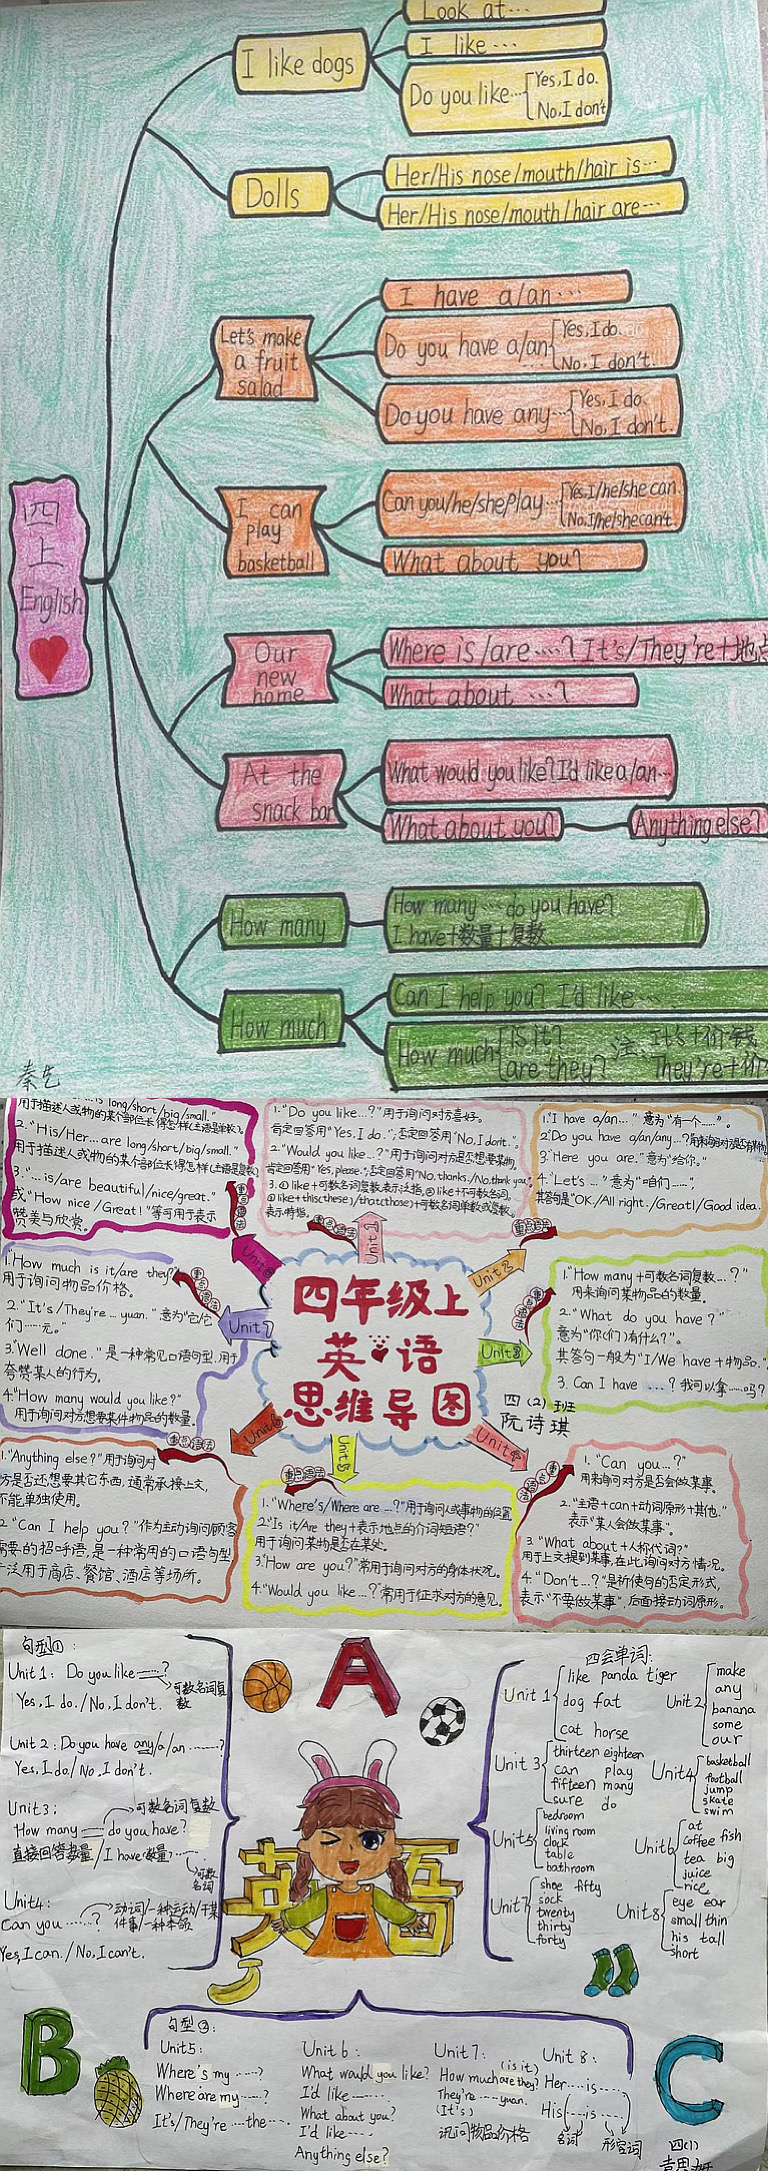 Look at…
I like dogs
I like…
Do you like…
Yes, I do.
No, I don't
Dolls
Her/His nose/mouth/hair is…
Her/His nose/mouth/hair are…
I have a/an…
Let's make
a fruit
salad
Do you have a/an
Yes, I do.
No, I don't.
Do you have any…
Yes, I do.
No, I don't.
I can
play
basketball
Can you/he/she play…
Yes, I/he/she can.
No, I/he/she can't.
What about you?
四
上
English
Our
new
home
Where is/are……? It's/They're+地点
What about …?
At the
snack bar
What would you like? I'd like a/an…
What about you?
Anything else?
How many
How many…do you have?
I have+数量+复数
How much
Can I help you? I'd like…
How much
is it?
are they?
注: It's+价钱
They're+价
秦艺
…is long/short/big/small."
用于描述人或物的某个部位长得怎样(主语是单数).
2."His/Her…are long/short/big/small."
用于描述人或物的某个部位长得怎样(主语是复数)
3."…is/are beautiful/nice/great."
或"How nice/Great!"等可用于表示
赞美与欣赏。
重点语法
Unit8
1."Do you like…?"用于询问对方喜好。
肯定回答用"Yes, I do.";否定回答用"No, I don't.".
2."Would you like…?"用于询问对方是否想要某物.
肯定回答用"Yes, please.";否定回答用"No, thanks./No, thank you."
3.①like+可数名词复数表示泛指,②like+不可数名词,
③like+this(these)/that(those)+可数名词单数或复数,
表示特指.
重点语法
Unit1
1."I have a/an…"意为"有一个……"。
2."Do you have a/an/any…?"用来询问对方是否有某物
3."Here you are."意为"给你。"
4."Let's…"意为"咱们……"
其答句是"OK./All right./Great!/Good idea.
重点语法
Unit2
1."How much is it/are they?"
用于询问物品价格。
2."It's/They're…yuan."意为"它/它
们……元。"
3."Well done."是一种常见口语句型,用于
夸赞某人的行为。
4."How many would you like?"
用于询问对方想要某件物品的数量。
重点语法
Unit7
四年级上
英语
思维导图
四(2)班
阮诗琪
1."How many+可数名词复数…?"
用来询问某物品的数量。
2."What do you have?"
意为"你(们)有什么?"。
其答句一般为"I/We have+物品."
3. Can I have …? 我可以拿……吗?
重点语法
Unit3
1."Anything else?"用于询问对
方是否还想要其它东西,通常承接上文,
不能单独使用。
2."Can I help you?"作为主动询问顾客
需要的招呼语,是一种常用的口语句型
泛用于商店、餐馆、酒店等场所。
重点语法
Unit6
重点语法
Unit5
1."Where's/Where are…?"用于询问人或事物的位置
2."Is it/Are they+表示地点的介词短语?"
用于询问某物是否在某处。
3."How are you?"常用于询问对方的身体状况。
4."Would you like…?"常用于征求对方的意见。
Unit4
重点语法
1."Can you…?"
用来询问对方是否会做某事。
2."主语+can+动词原形+其他."
表示"某人会做某事"。
3."What about+人称代词?"
用于上文提到某事,在此询问对方情况。
4."Don't…?"是祈使句的否定形式,
表示"不要做某事",后面接动词原形。
句型①:
Unit 1: Do you like ……?
可数名词复
数
Yes, I do./No, I don't.
Unit 2: Do you have any/a/an ……?
Yes, I do./No, I don't.
Unit3:
可数名词复数
How many …… do you have?
直接回答数量/I have 数量……
可数
名词
Unit4:
动词/一种运动/干某
件事/一种本领
Can you ……?
Yes, I can./No, I can't.
A
英语
四会单词:
Unit 1
like panda tiger
dog fat
cat horse
Unit2
make
any
banana
some
our
Unit 3
thirteen eighteen
can play
fifteen many
sure do
Unit4
basketball
football
jump
skate
swim
Unit5
bedroom
living room
clock
table
bathroom
Unit6
at
coffee fish
tea big
juice
rice
Unit7
shoe fifty
sock
twenty
thirty
forty
Unit8
eye ear
small thin
his tall
short
B
句型②:
Unit5:
Where's my ……?
Where are my ……?
It's/They're …the…
Unit 6:
What would you like?
I'd like……
What about you?
I'd like……
Anything else?
Unit 7:
(is it)
How much are they?
They're …… yuan.
(It's)
讯问物品价格
Unit 8:
Her…is……
His…is……
名词
形容词
C
四(1)